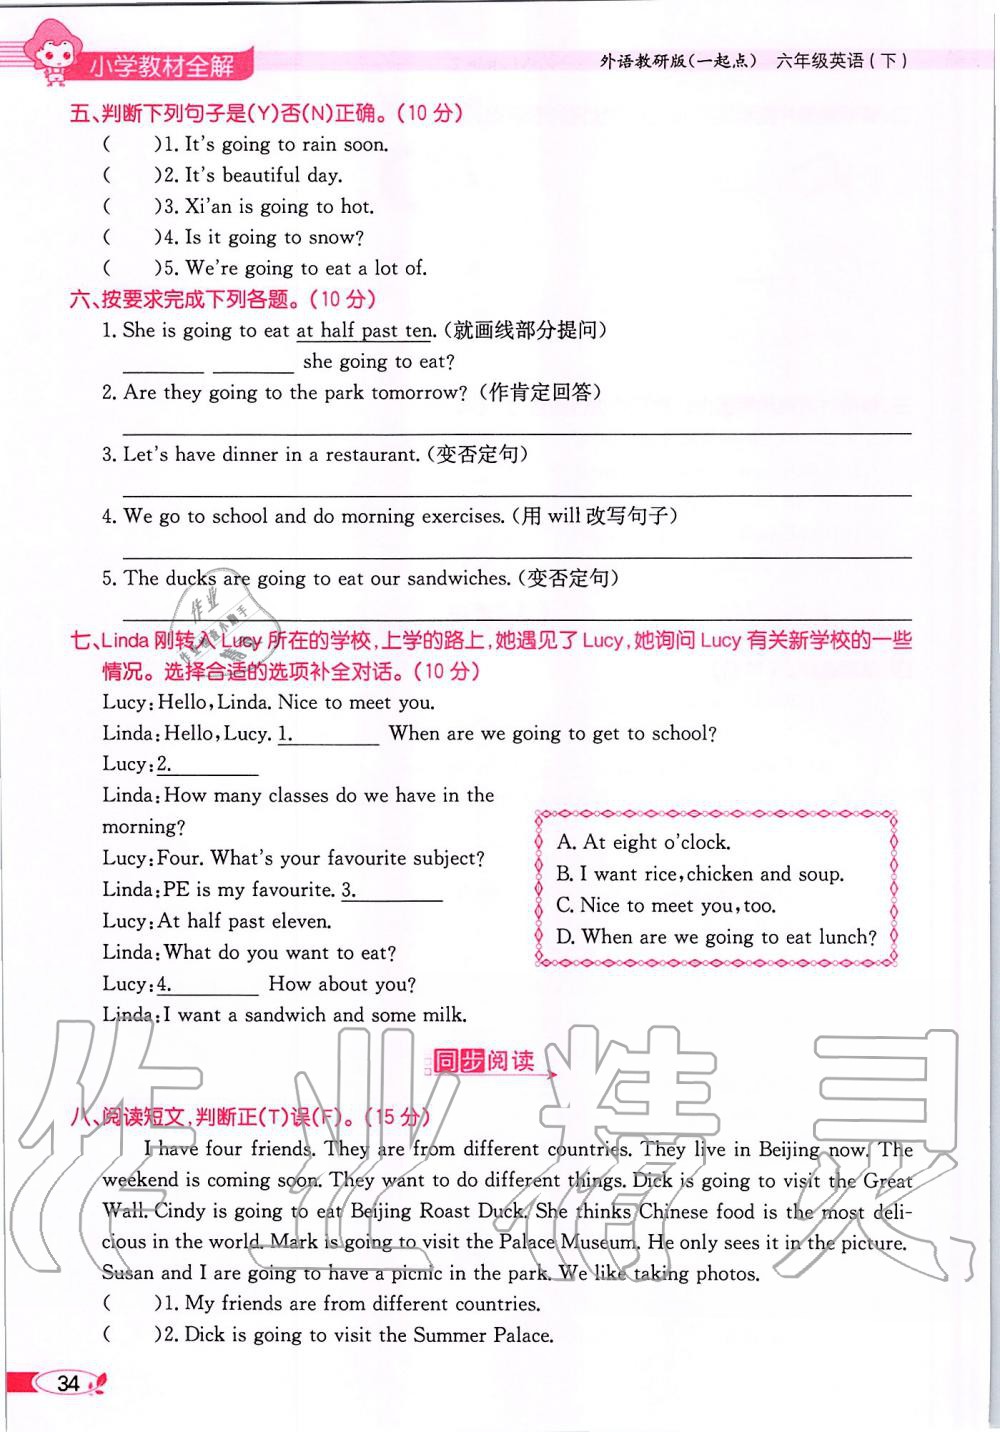 小学教材全解
外语教研版(一起点) 六年级英语(下)
五、判断下列句子是(Y)否(N)正确。(10 分)
(    )1. It's going to rain soon.
(    )2. It's beautiful day.
(    )3. Xi'an is going to hot.
(    )4. Is it going to snow?
(    )5. We're going to eat a lot of.
六、按要求完成下列各题。(10 分)
1. She is going to eat at half past ten. (就画线部分提问)
________ ________ she going to eat?
2. Are they going to the park tomorrow? (作肯定回答)
3. Let's have dinner in a restaurant. (变否定句)
4. We go to school and do morning exercises. (用 will 改写句子)
5. The ducks are going to eat our sandwiches. (变否定句)
七、Linda 刚转入 Lucy 所在的学校,上学的路上,她遇见了 Lucy,她询问 Lucy 有关新学校的一些
情况。选择合适的选项补全对话。(10 分)
Lucy: Hello, Linda. Nice to meet you.
Linda: Hello, Lucy. 1. ________ When are we going to get to school?
Lucy: 2. ________
Linda: How many classes do we have in the
morning?
Lucy: Four. What's your favourite subject?
Linda: PE is my favourite. 3. ________
Lucy: At half past eleven.
Linda: What do you want to eat?
Lucy: 4. ________ How about you?
Linda: I want a sandwich and some milk.
A. At eight o'clock.
B. I want rice, chicken and soup.
C. Nice to meet you, too.
D. When are we going to eat lunch?
同步阅读
八、阅读短文,判断正(T)误(F)。(15 分)
I have four friends. They are from different countries. They live in Beijing now. The
weekend is coming soon. They want to do different things. Dick is going to visit the Great
Wall. Cindy is going to eat Beijing Roast Duck. She thinks Chinese food is the most deli-
cious in the world. Mark is going to visit the Palace Museum. He only sees it in the picture.
Susan and I are going to have a picnic in the park. We like taking photos.
(    )1. My friends are from different countries.
(    )2. Dick is going to visit the Summer Palace.
34
作业精灵